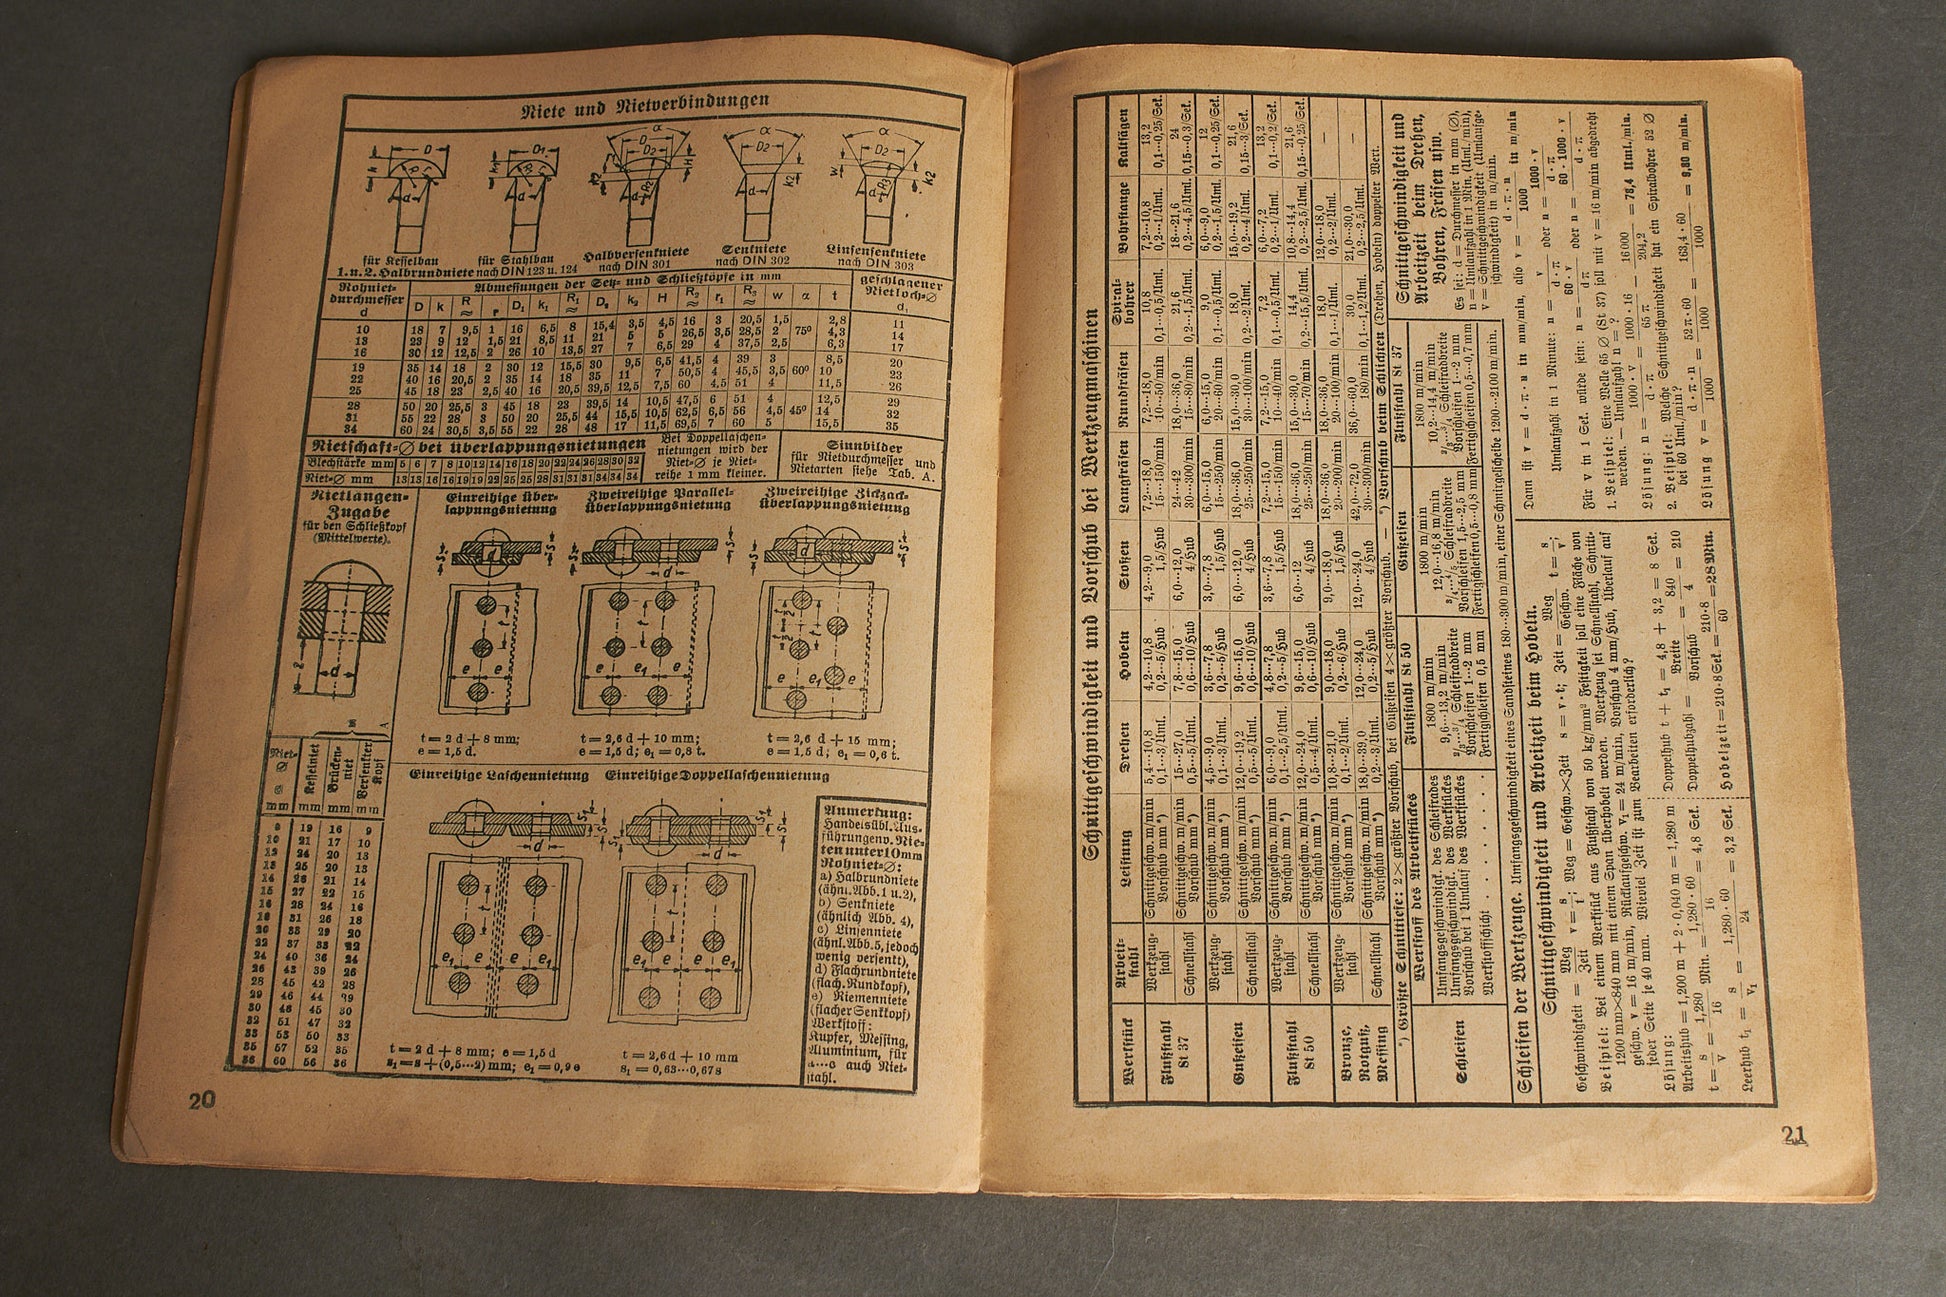 Niete und Nietverbindungen
für Kesselbau
für Stahlbau
1. u. 2. Halbrundniete nach DIN 123 u. 124
Halbversenkniete
nach DIN 301
Senkniete
nach DIN 302
Linsensenkniete
nach DIN 303
Rohniet-
durchmesser
d
Abmessungen der Setz- und Schließköpfe in mm
geschlagener
Nietloch-Ø
d₁
D k R r D₁ k₁ R₁ D₂ k₂ H R₂ r₁ R₃ w α t
10 18 7 9,5 1 16 6,5 8 15,4 3,5 4,5 16 3 20,5 1,5 2,8 11
13 23 9 12 1,5 21 8,5 11 21 5 5 26,5 3,5 28,5 2 75° 4,3 14
16 30 12 12,5 2 26 10 13,5 27 7 6,5 29 4 37,5 2,5 6,3 17
19 35 14 18 2 30 12 15,5 30 9,5 6,5 41,5 4 39 3 8,5 20
22 40 16 20,5 2 35 14 18 35 11 7 50,5 4 45,5 3,5 60° 10 23
25 45 18 23 2,5 40 16 20,5 39,5 12,5 7,5 60 4,5 51 4 11,5 26
28 50 20 25,5 3 45 18 23 39,5 14 10,5 47,5 6 51 4 12,5 29
31 55 22 28 3 50 20 25,5 44 15,5 10,5 62,5 6,5 56 4,5 45° 14 32
34 60 24 30,5 3,5 55 22 28 48 17 11,5 69,5 7 60 5 15,5 35
Nietschaft-Ø bei Überlappungsnietungen
Blechstärke mm 5 6 7 8 10 12 14 16 18 20 22 24 26 28 30 32
Niet-Ø mm 13 13 16 16 19 19 22 25 25 28 31 31 31 34 34 34
Bei Doppellaschen-
nietungen wird der
Niet-Ø je Niet-
reihe 1 mm kleiner.
Sinnbilder
für Nietdurchmesser und
Nietarten siehe Tab. A.
Nietlängen-
Zugabe
für den Schließkopf
(Mittelwerte).
Niet-
Ø
mm
Kesselniet
mm
Brücken-
niet
mm
Versenkter
Kopf
mm
8 19 16 9
10 21 17 10
12 24 20 13
13 25 20 13
14 26 21 14
15 27 22 15
16 28 24 16
18 31 26 18
20 33 29 20
22 37 33 22
24 40 36 24
26 43 39 26
28 45 42 28
29 46 44 29
30 48 45 30
32 51 47 32
33 53 50 33
35 57 52 35
36 60 56 36
Einreihige Über-
lappungsnietung
t = 2 d + 8 mm;
e = 1,5 d.
Zweireihige Parallel-
Überlappungsnietung
t = 2,6 d + 10 mm;
e = 1,5 d; e₁ = 0,8 t.
Zweireihige Zickzack-
Überlappungsnietung
t = 2,6 d + 15 mm;
e = 1,5 d; e₁ = 0,6 t.
Einreihige Laschennietung
t = 2 d + 8 mm; e = 1,5 d
s₁ = s + (0,5...2) mm; e₁ = 0,9 e
Einreihige Doppellaschennietung
t = 2,6 d + 10 mm
s₁ = 0,63...0,67 s
Anmerkung:
Handelsübl. Aus-
führungen v. Nie-
ten unter 10 mm
Rohniet-Ø:
a) Halbrundniete
(ähnl. Abb. 1 u. 2),
b) Senkniete
(ähnlich Abb. 4),
c) Linsenniete
(ähnl. Abb. 5, jedoch
wenig versenkt),
d) Flachrundniete
(flach. Rundkopf),
e) Riemenniete
(flacher Senkkopf)
Werkstoff:
Kupfer, Messing,
Aluminium, für
a...c auch Niet-
stahl.
20
Schnittgeschwindigkeit und Vorschub bei Werkzeugmaschinen
Werkstück Arbeit-stahl Leistung Drehen Hobeln Stoßen Langfräsen Rundfräsen Spiral-bohrer Bohrstange Kaltsägen
Flußstahl St 37 Werkzeug-stahl Schnittgeschw. m/min 5,4...10,8 4,2...10,8 4,2...9,0 7,2...18,0 7,2...18,0 10,8 7,2...10,8 13,2
Vorschub mm*) 0,1...3/Uml. 0,2...5/Hub 1,5/Hub 15...150/min 10...50/min 0,1...0,5/Uml. 0,2...1/Uml. 0,1...0,25/Sek.
Schnellstahl Schnittgeschw. m/min 15...27,0 7,8...15,0 6,0...12,0 24...42 18...36,0 21,6 18...21,6 24
Vorschub mm*) 0,5...5/Uml. 0,6...10/Hub 4/Hub 30...300/min 15...80/min 0,2...1,5/Uml. 0,2...4,5/Uml. 0,15...0,3/Sek.
Gußeisen Werkzeug-stahl Schnittgeschw. m/min 4,5...9,0 3,6...7,8 3,0...7,8 6,0...15,0 6,0...15,0 9,0 6,0...9,0 12
Vorschub mm*) 0,1...3/Uml. 0,2...5/Hub 1,5/Hub 15...150/min 20...60/min 0,1...0,5/Uml. 0,2...1,5/Uml. 0,1...0,25/Sek.
Schnellstahl Schnittgeschw. m/min 12,0...19,2 9,6...15,0 6,0...12,0 18,0...36,0 15,0...30,0 18,0 15,0...19,2 21,6
Vorschub mm*) 0,5...5/Uml. 0,6...10/Hub 4/Hub 25...250/min 30...100/min 0,2...2/Uml. 0,2...4/Uml. 0,15...3/Sek.
Flußstahl St 50 Werkzeug-stahl Schnittgeschw. m/min 6,0...9,0 4,8...7,8 3,6...7,8 7,2...15,0 7,2...15,0 7,2 6,0...7,2 13,2
Vorschub mm*) 0,1...2,5/Uml. 0,2...5/Hub 1,5/Hub 15...150/min 10...40/min 0,1...0,5/Uml. 0,2...1/Uml. 0,1...0,2/Sek.
Schnellstahl Schnittgeschw. m/min 12,0...24,0 9,6...15,0 6,0...12 18,0...36,0 15,0...30,0 14,4 10,8...14,4 21,6
Vorschub mm*) 0,5...4/Uml. 0,6...10/Hub 4/Hub 25...250/min 15...70/min 0,2...15,5/Uml. 0,2...2,5/Uml. 0,15...0,25/Sek.
Bronze, Rotguß, Messing Werkzeug-stahl Schnittgeschw. m/min 10,8...21,0 9,0...18,0 9,0...18,0 18,0...36,0 18,0...36,0 18,0 12,0...18,0 —
Vorschub mm*) 0,1...2/Uml. 0,2...6/Hub 1,5/Hub 20...200/min 20...100/min 0,1...1/Uml. 0,2...2/Uml.
Schnellstahl Schnittgeschw. m/min 18,0...39,0 12,0...24,0 12,0...24,0 42,0...72,0 36,0...60,0 30,0 21,0...30,0 —
Vorschub mm*) 0,2...3/Uml. 0,2...5/Hub 4/Hub 30...300/min 180/min 0,1...1,2/Uml. 0,2...2,5/Uml.
*) Größte Schnittiefe: 2 × größter Vorschub, bei Gußeisen 4 × größter Vorschub. — *) Vorschub beim Schlichten (Drehen, Hobeln) doppelter Wert.
Schleifen
Werkstoff des Arbeitstückes Flußstahl St 50 Gußeisen Flußstahl St 37
Umfangsgeschwindigk. des Schleifrades 1800 m/min 1800 m/min 1800 m/min
Umfangsgeschwindigk. des Werkstückes 9,6...13,2 m/min 12,0...16,8 m/min 10,2...14,4 m/min
Vorschub bei 1 Umlauf des Werkstückes 2/3...3/4 Schleifradbreite 3/4...4/5 Schleifradbreite 2/3...3/4 Schleifradbreite
Werkstoffschicht . . . . . Vorschleifen 1...2 mm Vorschleifen 1,5...2,5 mm Vorschleifen 1...2 mm
Fertigschleifen 0,5 mm Fertigschleifen 0,5...0,8 mm Fertigschleifen 0,5...0,7 mm
Schleifen der Werkzeuge. Umfangsgeschwindigkeit eines Sandsteines 180...300 m/min, einer Schmirgelscheibe 1200...2100 m/min.
Schnittgeschwindigkeit und Arbeitzeit beim Hobeln.
Geschwindigkeit = Weg / Zeit v = s / t; Weg = Geschw. × Zeit s = v · t; Zeit = Weg / Geschw. t = s / v;
Beispiel: Bei einem Werkstück aus Flußstahl von 50 kg/mm² Festigkeit soll eine Fläche von
1200 mm × 840 mm mit einem Span überhobelt werden. Werkzeug sei Schnellstahl, Schnitt-
geschw. v = 16 m/min, Rücklaufgeschw. V₁ = 24 m/min, Vorschub 4 mm/Hub, Überlauf auf
jeder Seite je 40 mm. Wieviel Zeit ist zum Bearbeiten erforderlich?
Lösung:
Arbeitshub = 1,200 m + 2 · 0,040 m = 1,280 m
t = s / v = 1,280 / 16 Min. = 1,280 · 60 / 16 = 4,8 Sek.
Leerhub t₁ = s / v₁ = 1,280 · 60 / 24 = 3,2 Sek.
Doppelhub t + t₁ = 4,8 + 3,2 = 8 Sek.
Doppelhubzahl = Breite / Vorschub = 840 / 4 = 210
Hobelzeit = 210 · 8 Sek. = 210 · 8 / 60 = 28 Min.
Schnittgeschwindigkeit und
Arbeitzeit beim Drehen,
Bohren, Fräsen usw.
Es sei: d = Durchmesser in mm (Ø),
n = Umlaufzahl in 1 Min. (Uml./min),
v = Schnittgeschwindigkeit (Umlaufge-
schwindigkeit) in m/min.
Dann ist v = d · π · n in mm/min, also v = d · π · n / 1000 in m/min
Umlaufzahl in 1 Minute: n = v / d · π oder n = 1000 · v / d · π
Für v in 1 Sek. würde sein: n = 60 · v / dπ oder n = 60 · 1000 · v / d · π
1. Beispiel: Eine Welle 65 Ø (St 37) soll mit v = 16 m/min abgedreht
werden. — Umlaufzahl n = ?
Lösung: n = 1000 · v / d · π = 1000 · 16 / 65 π = 16000 / 204,2 = 78,4 Uml./min.
2. Beispiel: Welche Schnittgeschwindigkeit hat ein Spiralbohrer 52 Ø
bei 60 Uml./min?
Lösung v = d · π · n / 1000 = 52 π · 60 / 1000 = 163,4 · 60 / 1000 = 9,80 m/min.
21